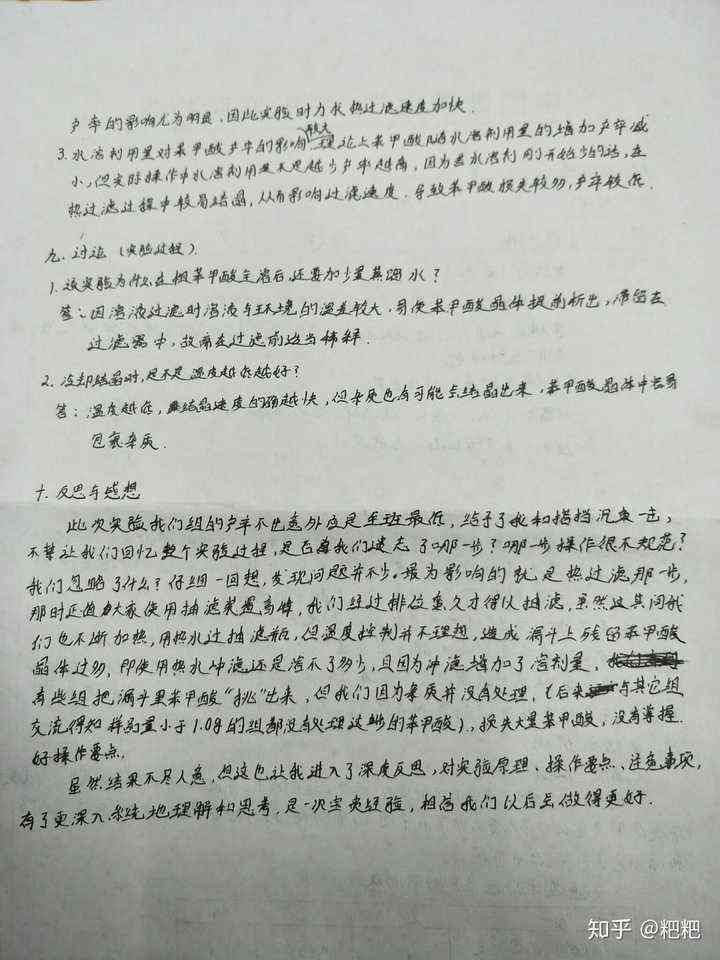 产率的影响尤为明显,因此实验时力求热过滤速度加快.
3.水溶剂用量对苯甲酸产率的影响较大理论上苯甲酸随水溶剂用量的增加产率减
小,但实际操作中水溶剂用量不是越少产率越高,因为若水溶剂刚开始少的话,在
热过滤过程中较易结晶,从而影响过滤速度.导致苯甲酸损失较多,产率较低.
九.讨论(实验过程).
1.该实验为什么在粗苯甲酸全溶后,还要加少量蒸馏水?
答:因溶液过滤时溶液与环境的温差较大,易使苯甲酸晶体提前析出,滞留在
过滤器中,故需在过滤前适当稀释.
2.冷却结晶时,是不是温度越低越好?
答:温度越低,结晶速度的确越快,但杂质也有可能会结晶出来,苯甲酸晶体中会易
包裹杂质.
十.反思与感想
此次实验我们组的产率不出意外应是全班最低,给予了我和搭挡沉重一击,
不禁让我们回忆整个实验过程,是否我们遗忘了哪一步?哪一步操作很不规范?
我们忽略了什么?仔细一回想,发现问题并不少.最为影响的就是热过滤那一步,
那时正值大家使用抽滤装置高峰,我们经过排位良久才得以抽滤,虽然这其间我
们也不断加热,用热水过抽滤瓶,但温度控制并不理想,造成漏斗上残留苯甲酸
晶体过多,即使用热水冲滤还是溶不了多少,且因为冲滤增加了溶剂量,
有些组把漏斗里苯甲酸“挑”出来,但我们因为杂质并没有处理,(后来与其它组
交流得知样品量小于1.0g的组都没有处理这些的苯甲酸),损失大量苯甲酸,没有掌握
好操作要点.
虽然结果不尽人意,但这也让我进入了深度反思,对实验原理、操作要点、注意事项,
有了更深入系统地理解和思考,是一次宝贵经验,相信我们以后会做得更好.
知乎 @粑粑